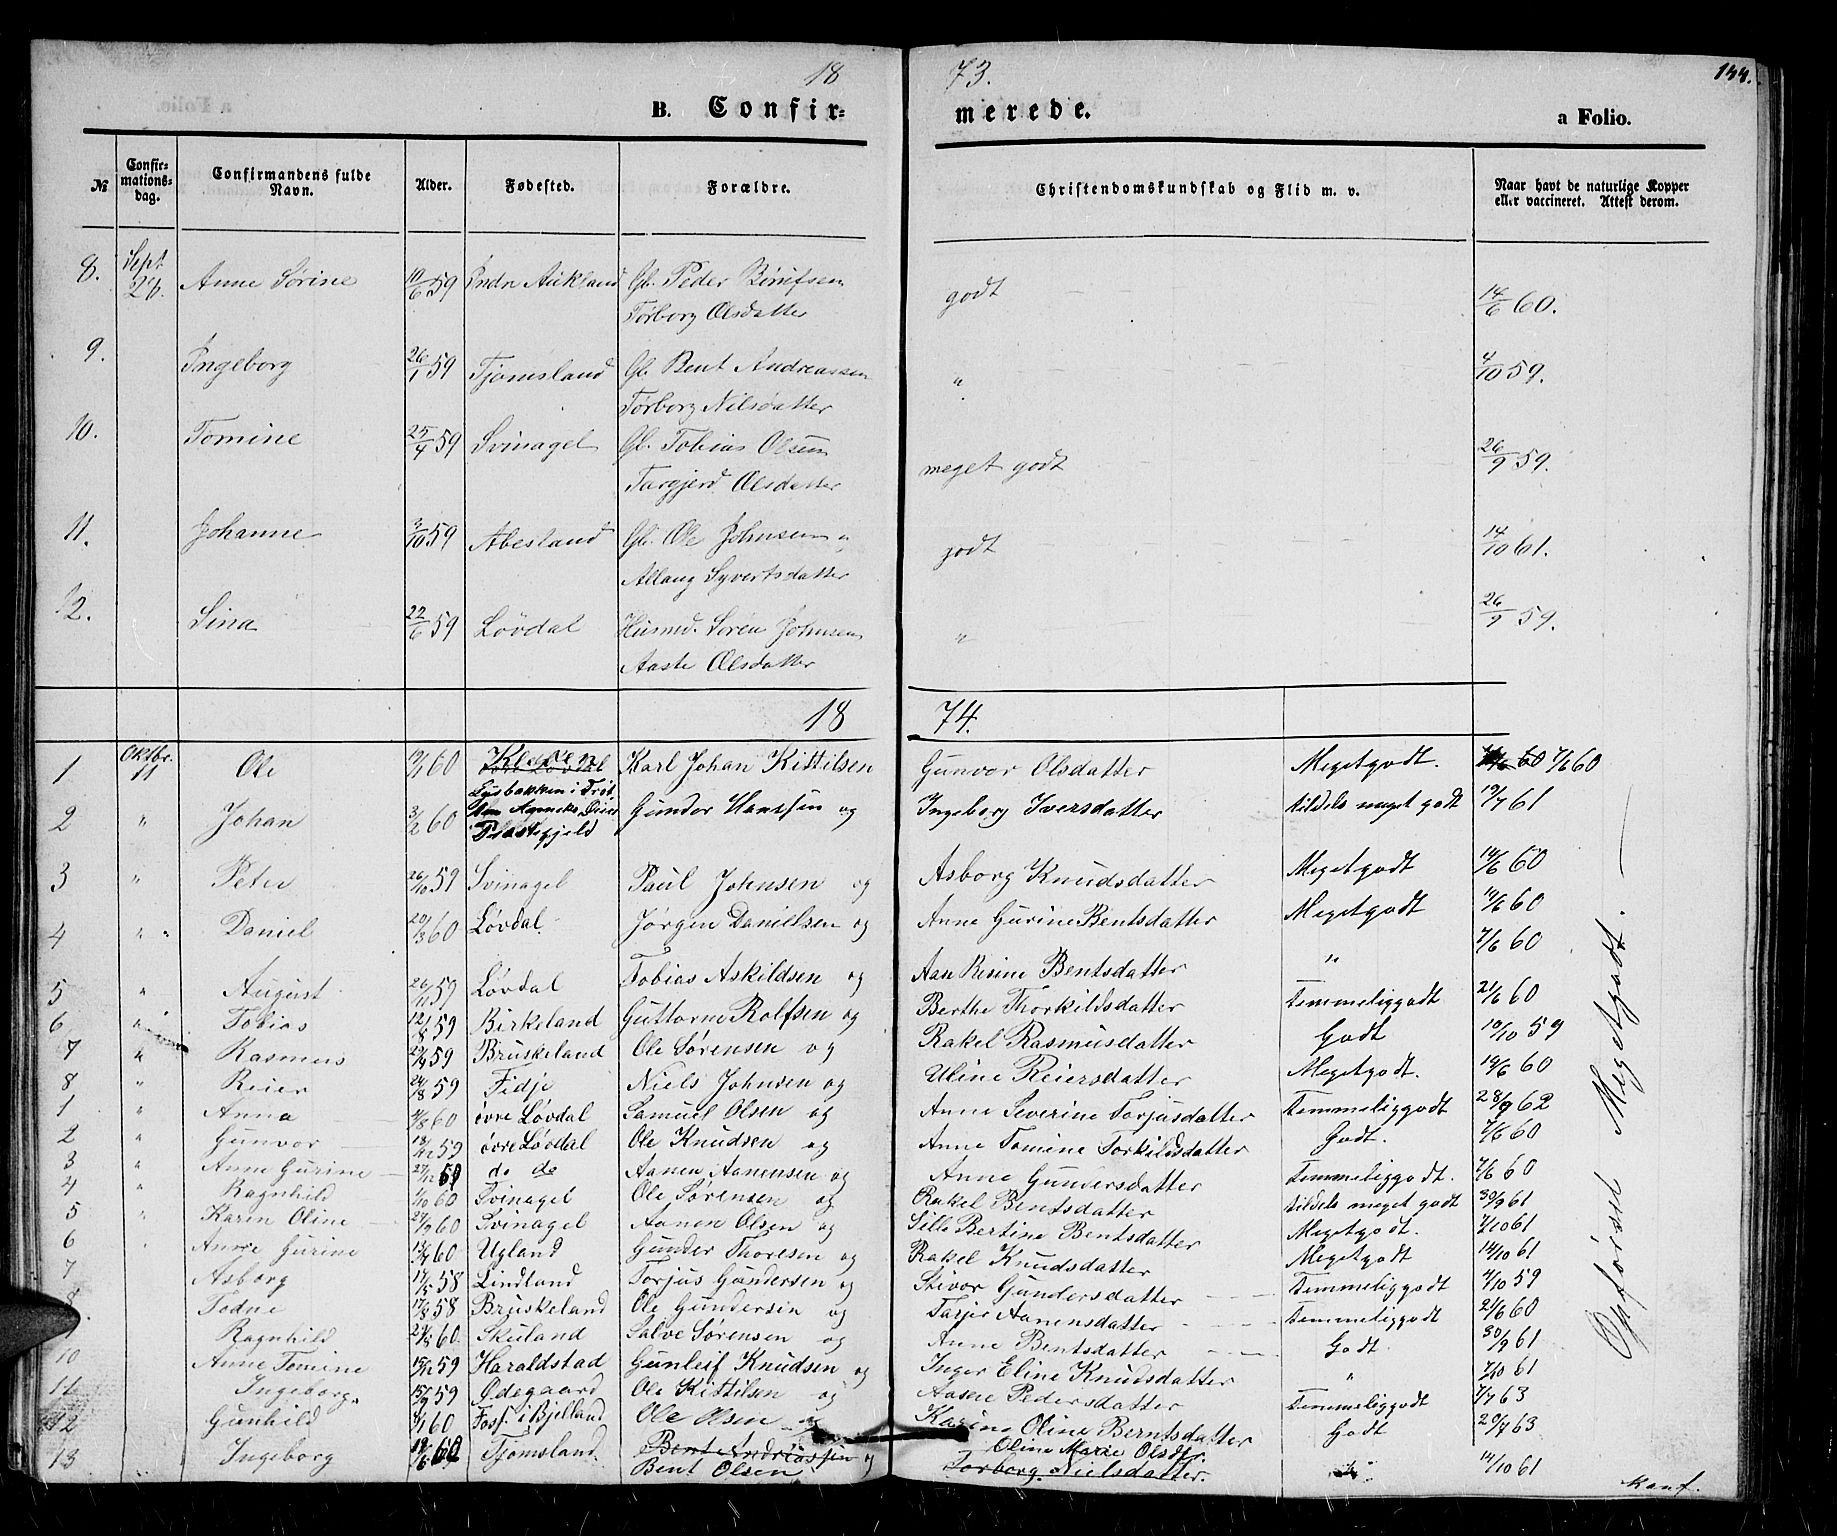 18 73. 144.
B. Confir= merede. a Folio.
№ Confir=mations=dag. Confirmandens fulde Navn. Alder. Fødested. Forældre. Christendomskundskab og Flid m. v. Naar havt de naturlige Kopper eller vaccineret. Attest derom.
8. Sept 26. Anne Sørine 10/6 59 Indr Aukland Gb. Peder godt 14/6 60.
Torborg Olsdatter
9. Ingeborg 26/1 59 Tjomsland Gb. Bent Andreassen " 4/10 59.
Torborg Nilsdatter
10. Tomine 25/4 59 Svinagel Gb. Tobias Olsen meget godt 26/9 59.
Targjerd Olsdatter
11. Johanne 3/10 59 Abesland Gb. Ole Johnsen godt 14/10 61.
Allaug Syvertsdatter
12. Sina 22/6 59 Løvdal Husmd. Søren Johnsen " 26/9 59.
Aaste Olsdatter
18 74.
1 Oktbr. 11 Ole 19/1 60 Kleven Karl Johan Kittilsen Gunvor Olsdatter Megetgodt. 7/6 60
2 " Johan 3/2 60 Gunder Hansen og Ingeborg Iversdatter tildels meget godt 19/7 61
3 " Peter 26/10 59 Svinagel Paul Johnsen og Asborg Knudsdatter Megetgodt 14/6 60
4 " " Daniel 20/3 60 Løvdal. Jørgen Danielsen og Anne Gurine Bentsdatter Megetgodt 14/6 60
5 " August 26/11 59 Løvdal Tobias Askildsen og Aas Resine Bentsdatter " 7/6 60
6 " Tobias 12/8 59 Birkeland Guttorm Rolfsen og Berthe Thorkildsdatter temmeliggodt 21/6 60
7 " Rasmus 29/9 59 Bruskeland Ole Sørensen og Rakel Rasmusdatter Godt 10/10 59
8 " Reier 24/8 59 Fidje Niels Johnsen og Uline Reiersdatter Megetgodt. 14/6 60
1 " Anna 4/8 60 øvre Løvdal Samuel Olsen og Anne Severine Torjusdatter temmeliggodt 28/9 62
2 " Gunvor 18/12 59 øvre Løvdal Ole Knudsen og Anne Tomine Torkildsdatter Godt. 7/6 60
3 " Anne Gurine 27/12 59 do do Aanen Aanensen og Anne Gundersdatter temmeliggodt. 7/6 60
4 " Ragnhild 7/10 60 Svinagel Ole Sørensen og Rakel Bentsdatter tildels meget godt 30/9 61
5 " Karen Oline 27/9 60 Svinagel Aanen Olsen og Sille Bertine Bentsdatter Megetgodt. 7/10 61
6 " Anne Gurine 13/4 60 Ugland Gunder Thoresen og Rakel Knudsdatter Megetgodt 14/10 61
7 Asborg 17/5 58 Lindland Torjus Gundersen og Stivor Gundersdatter temmeliggodt 4/10 59
8 Todne 17/8 58 Bruskeland Ole Gundersen og Tarjer Aanensdatter temmeliggodt 21/6 60
Ragnhild 27/8 60. Skuland Salve Sørensen og Anne Bentsdatter Godt 30/9 61
10 Anne Tomine 15/12 59 Haraldstad Gunleif Knudsen og Inger Eline Knudsdatter " 7/10 61
11 Ingeborg. 15/9 59 Ødegaard Ole Kittilsen og Aasne Pedersdatter temmeliggodt 7/7 63
12 Gunhild 4/1 60 Foss. i Bjelland Ole Olsen og Karine Oline Berntsdatter Godt 20/7 63
13 Ingeborg 19/6 60 Tjomsland. Bent Andreassen og Oline Marie Olsdtr. 14/10 61
Bent Olsen Torborg Nielsdatter.
Opførsel Megetgodt.